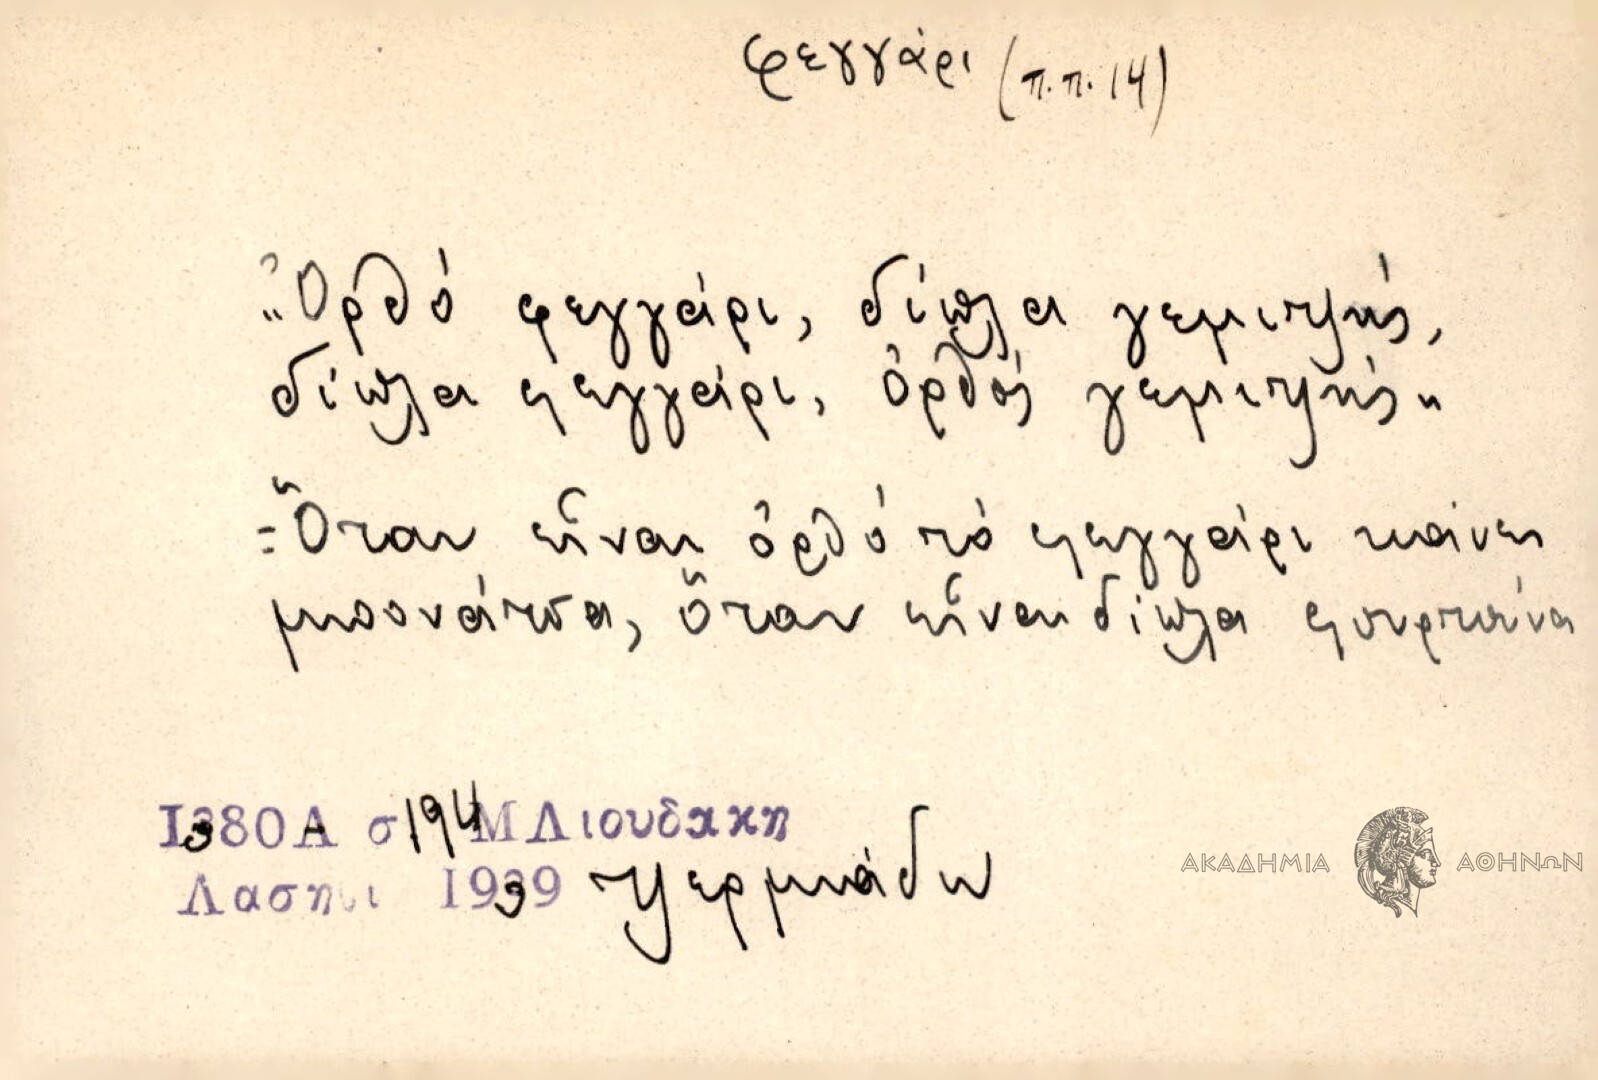 φεγγάρι (π.π. 14)
„Ὀρθό φεγγάρι, δίπλα γεμιτζής,
δίπλα φεγγάρι, ὀρθός γεμιτζής"
=Ὅταν εἶναι ὀρθό τό φεγγάρι κάνει
μπονάτσα, ὅταν εἶναι δίπλα φουρτούνα
1380Α σ 194 Μ Λιουδακη
Λασηθι 1939 Τζερμιάδω
ΑΚΑΔΗΜΙΑ ΑΘΗΝΩΝ